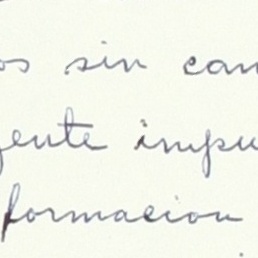 os sin can
gente impu
formacion